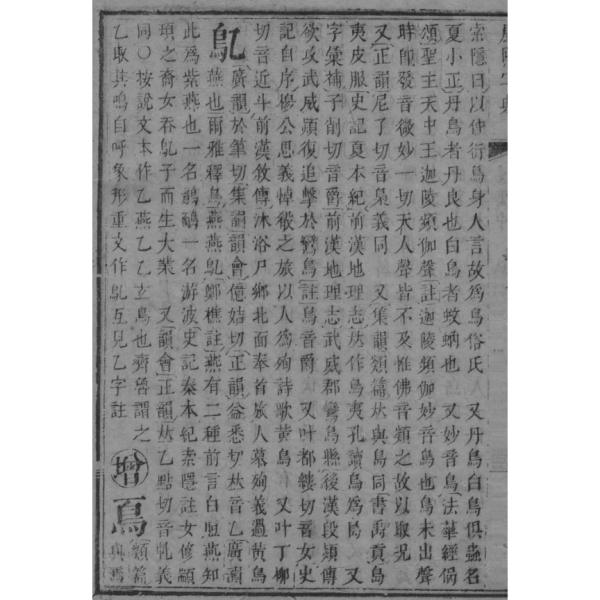 索隱曰以仲衍鳥身人言故爲鳥俗氏　又丹鳥白鳥俱蟲名
夏小正丹鳥者丹良也白鳥者蚊蚋也　又妙音鳥法華經偈
頌聖主天中王迦陵頻伽聲註迦陵頻伽妙音鳥也鳥未出聲
時卽發音微妙一切天人聲皆不及惟佛音類之故以取況
又正韻尼了切音裊義同　又集韻類篇𠀤與島同書禹貢島
夷皮服史記夏本紀前漢地理志𠀤作鳥夷孔讀鳥爲島　又
字彙補子削切音爵前漢地理志武威郡鸞鳥縣後漢段熲傳
欲攻武威熲復追擊於鸞鳥註鳥音爵　又叶都縷切音女史
記自序穆公思義悼豥之旅以人爲殉詩歌黃鳥　又叶丁柳
切音近斗前漢敘傳沐浴尸鄉北面奉首旅人慕殉義過黃鳥
鳦廣韻於筆切集韻韻會億姞切正韻益悉切𠀤音乙廣韻
燕也爾雅釋鳥燕燕鳦鄭樵註燕有二種前言白脰燕知
此爲紫燕也一名鷾鴯一名游波史記秦本紀索隱註女修顓
頊之裔女吞鳦子而生大業　又韻會正韻𠀤乙黠切音軋義
同○按說文本作乙燕乙乙玄鳥也齊魯謂之
乙取其鳴自呼象形重文作鳦互見乙字註　增　𩾏　類篇與焉